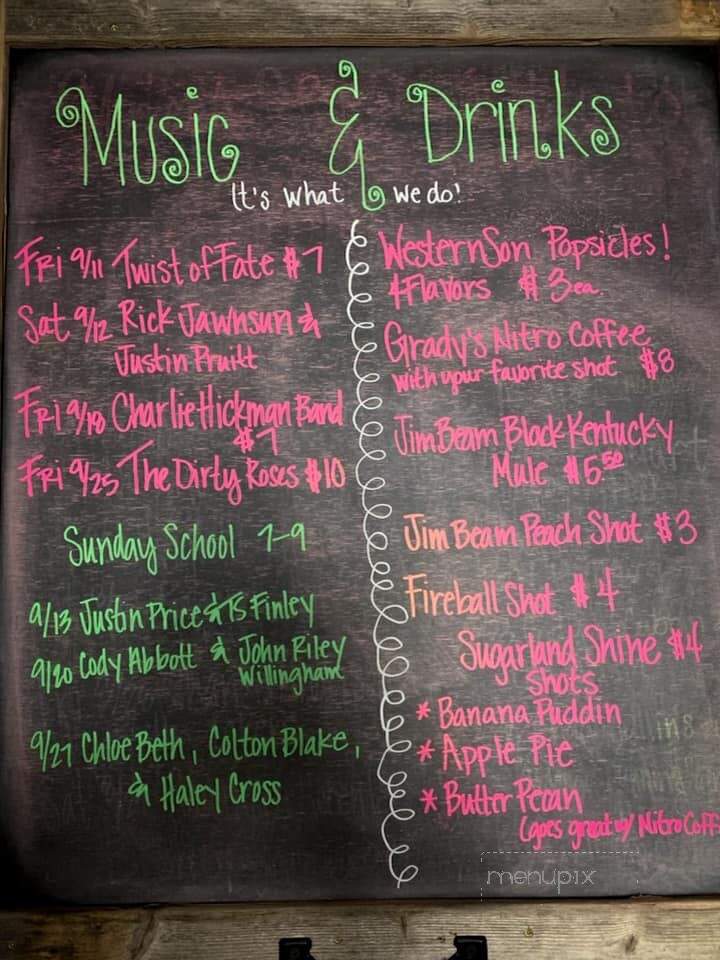 Music & Drinks
It's what we do!
Fri 9/11 Twist of Fate $7
Sat 9/12 Rick Jawnsun &
Justin Pruitt
Fri 9/18 Charlie Hickman Band
$7
Fri 9/25 The Dirty Roses $10
Sunday School 7-9
9/13 Justin Price & TS Finley
9/20 Cody Abbott & John Riley
Willingham
9/27 Chloe Beth, Colton Blake,
& Haley Cross
Western Son Popsicles!
4 Flavors $3ea.
Grady's Nitro Coffee
with your favorite shot $8
Jim Beam Black Kentucky
Mule $6.50
Jim Beam Peach Shot $3
Fireball Shot $4
Sugarland Shine $4
Shots
* Banana Puddin
* Apple Pie
* Butter Pecan
(goes great w/ Nitro Coff
menupix